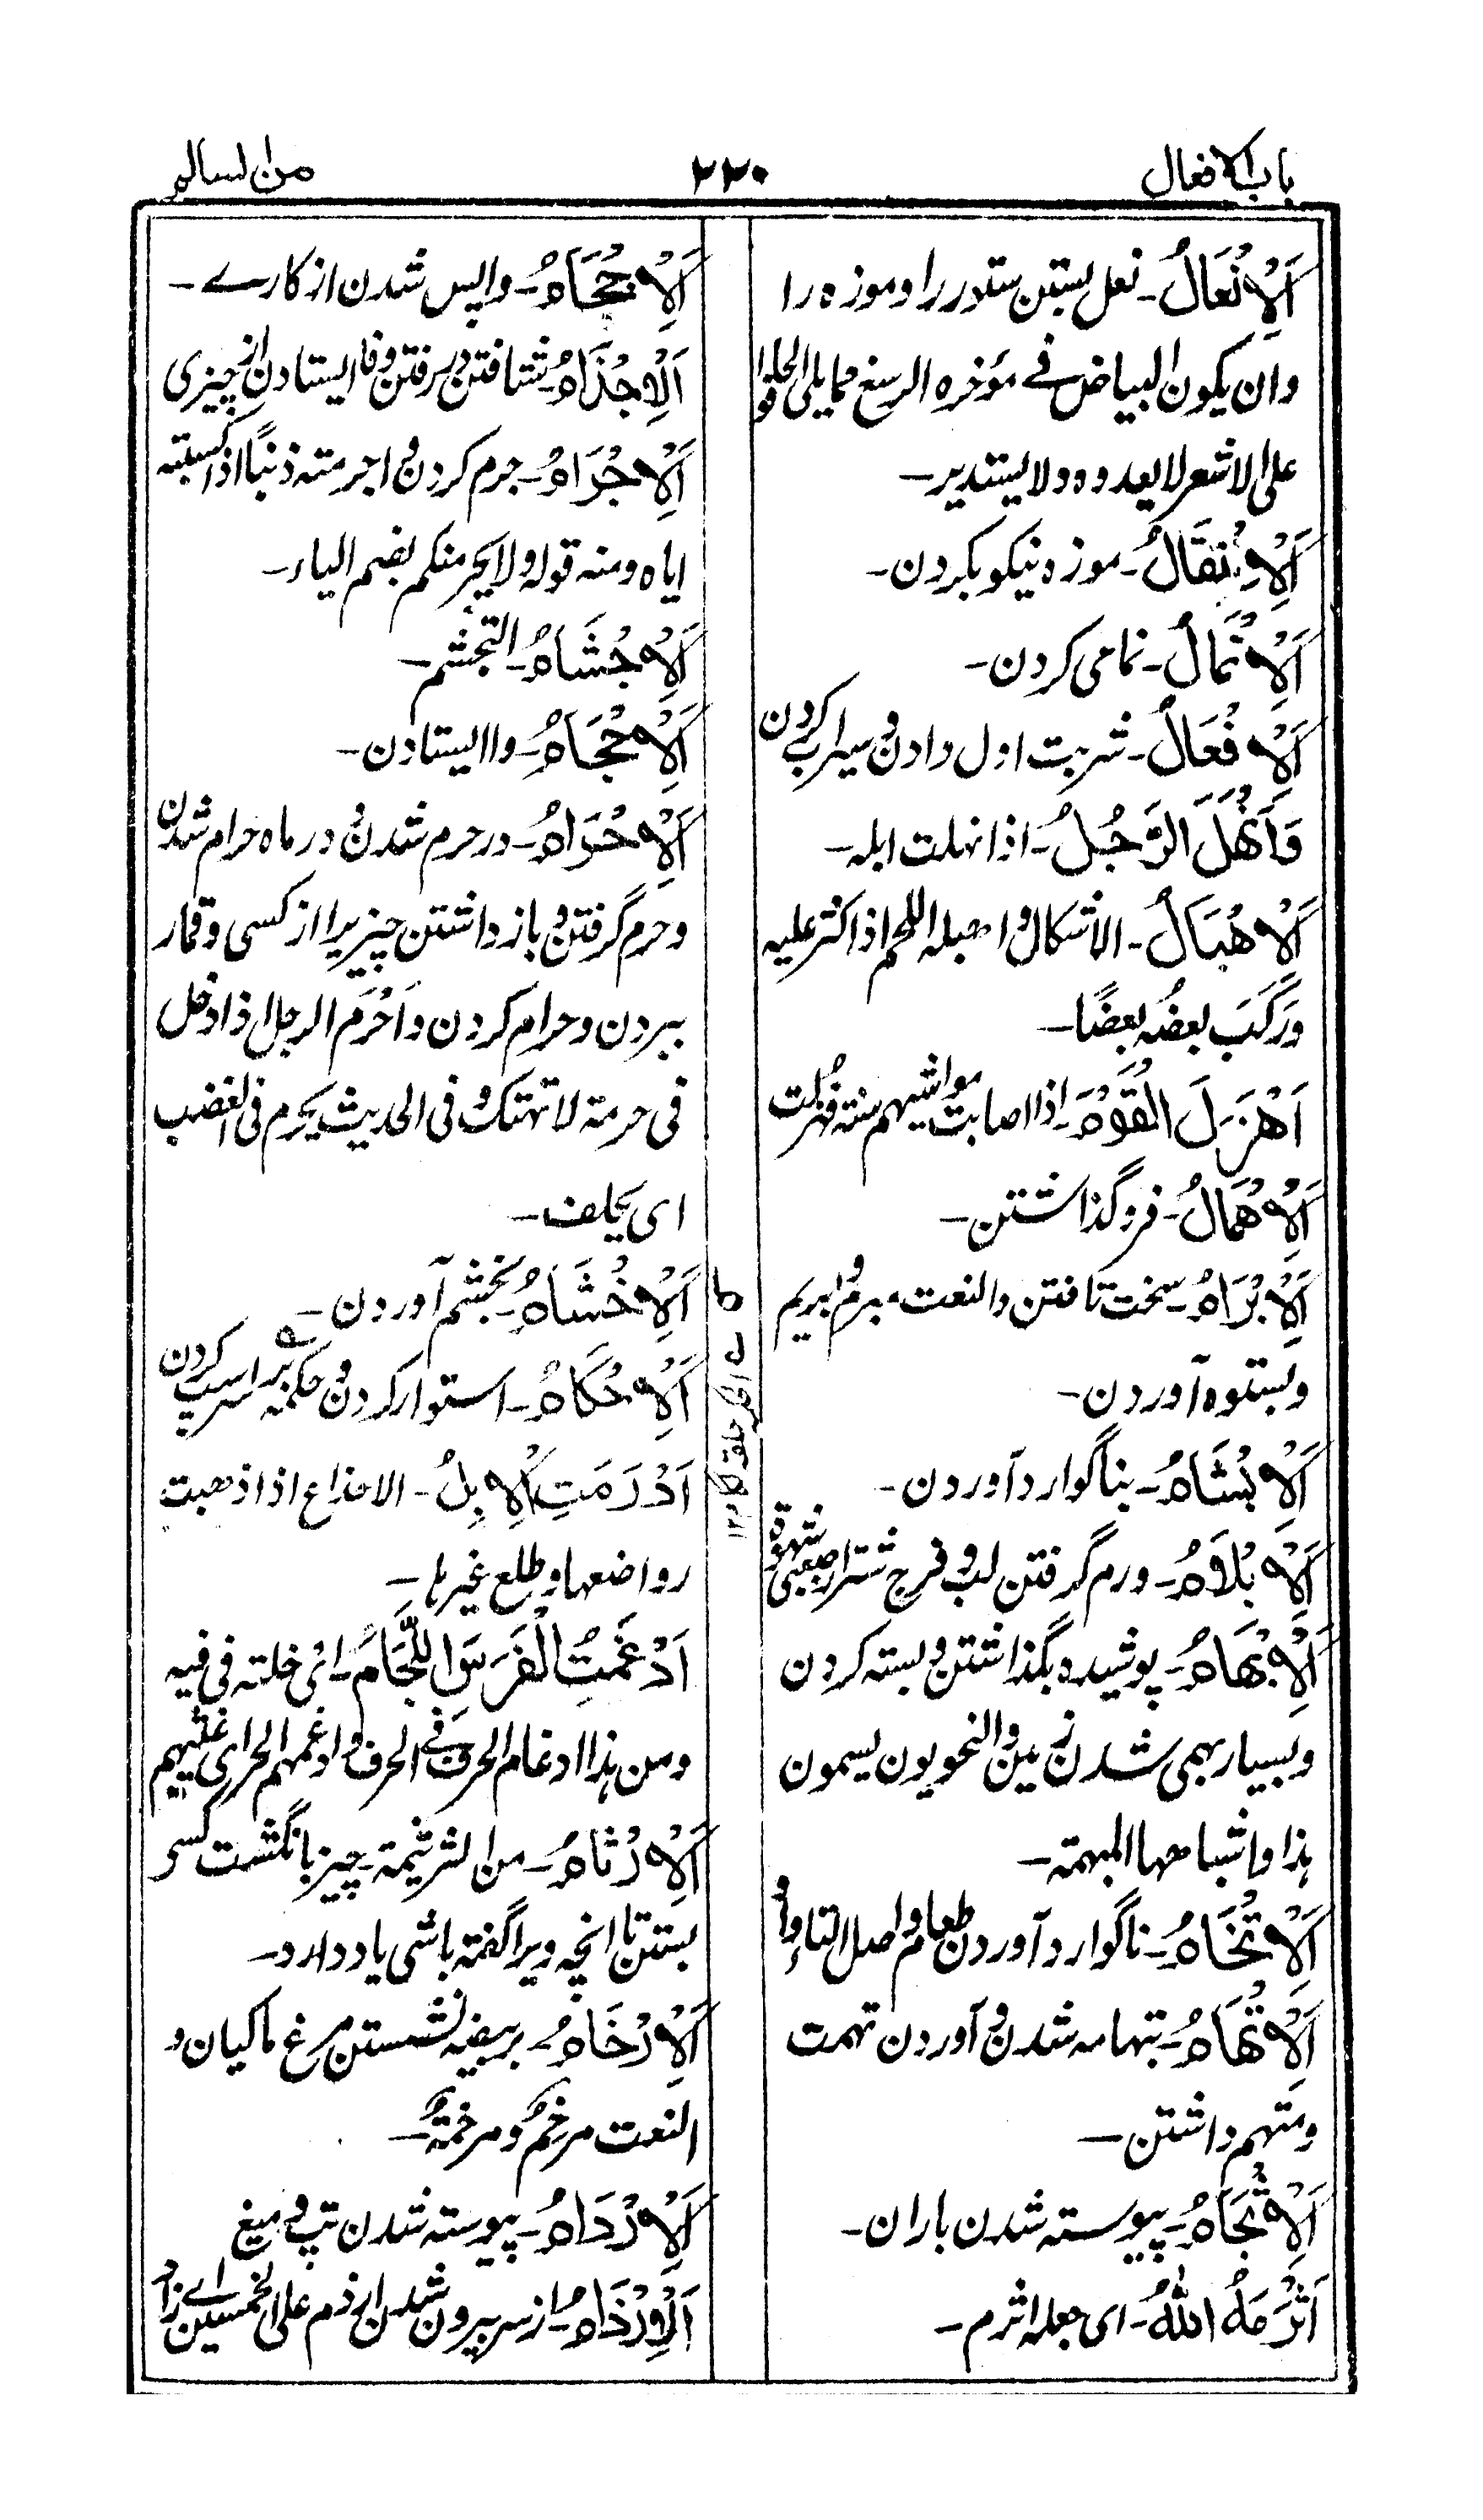 باب الافعال
۲۲۰
من السالم
اَلْاِنْعَالُ ۔ نعل بستن ستور را و موزه را
وان یکون البیاض فے مؤخره الرسغ مما یلی الحافر
علی الاشعر لا یعدوه ولا یستدیر ۔
اَلْاِنْقَالُ ۔ موزه نیکو بکردن ۔
اَلْاِنْمَالُ ۔ نمامی کردن ۔
شربت اول دادن و سیراب کردن
وَاَنْهَلَ الرَّجُلُ ۔ اذا نہلت ابله ۔
اَلْاِهْبَالُ ۔ الاثکال و اہبله اللحم اذا اکثر علیه
ورَکَبَ بعضُه بعضًا ۔
اَهْزَلَ الْقَوْمُ ۔ اذا اصابت مواشیہم سنة فہزلت
اَلْاِهْمَالُ ۔ فرو گذاشتن ۔
اَلْاِبْرَامُ ۔ سخت تافتن والنعت مبرم و بریم
و بستوه آوردن ۔
اَلْاِبْشَامُ ۔ بناگوارد آوردن ۔
اَلْاِبْلَامُ ۔ ورم گرفتن لب و فرج شتر از صعبی شہوة
اَلْاِبْهَامُ ۔ پوشیده بگذاشتن و بسته کردن
و بسیار بہمی شدن زمین و النحویون یسمون
ہذا و اشباہہا المبہمة ۔
اَلْاِتْخَامُ ۔ ناگوارد آوردن طعام و اصل التاء واو
اَلْاِتْهَامُ ۔ بتہامه شدن و آوردن تہمت
و متہم داشتن ۔
اَلْاِثْجَامُ ۔ پیوسته شدن باران ۔
اَثْرَمَهُ اللهُ ۔ ای جعله اثرم ۔
اَلْاِحْجَامُ ۔ واپس شدن از کارے ۔
اَلْاِجْذَامُ ۔ شتافتن در رفتن و فا ایستادن از چیزی
اَلْاِجْرَامُ ۔ جرم کردن و اجرمته ذنبًا اذا کسبته
ایاه و منه قوله ولا یجرمنکم بضم الیاء ۔
اَلْاِجْشَامُ ۔ التجشم ۔
اَلْاِحْجَامُ ۔ وا ایستادن ۔
اَلْاِحْرَامُ ۔ در حرم شدن و در ماه حرام شدن
و حرم گرفتن و باز داشتن چیزیرا از کسی و قمار
ببردن و حرام کردن و اَحْرَمَ الرجل اذا دخل
فی حرمة لا تہتک و فی الحدیث یحرم فی الغضب
ای یحلف ۔
اَلْاِحْشَامُ ۔ بخشم آوردن ۔
اَلْاِحْکَامُ ۔ استوار کردن و حکمه بر سر اسپ کردن
اَدْرَمَتِ الْاِبِلُ ۔ الاجذاع اذا ذهبت
رواضعہا و طلع غیرہا ۔
اَدْغَمْتُ الْفَرَسَ اللِّجَامَ ۔ ای ادخلته فی فیه
و من ہذا ادغام الحرف فے الحرف و ادغمہم الحر ای غشیہم
اَلْاِرْتَامُ ۔ من الرتیمة ۔ چیز بانگشت کسی
بستن تا انچه ویرا گفته باشی یاد دارد ۔
اَلْاِرْخَامُ ۔ بر بیضه نشستن مرغ ماکیان و
النعت مرخم و مرخمة ۔
اَلْاِرْدَامُ ۔ پیوسته شدن تپ و میغ
اَلْاِرْذَامُ ۔ از سر بیرون شدن ارذم علی الخمسین اے زاد